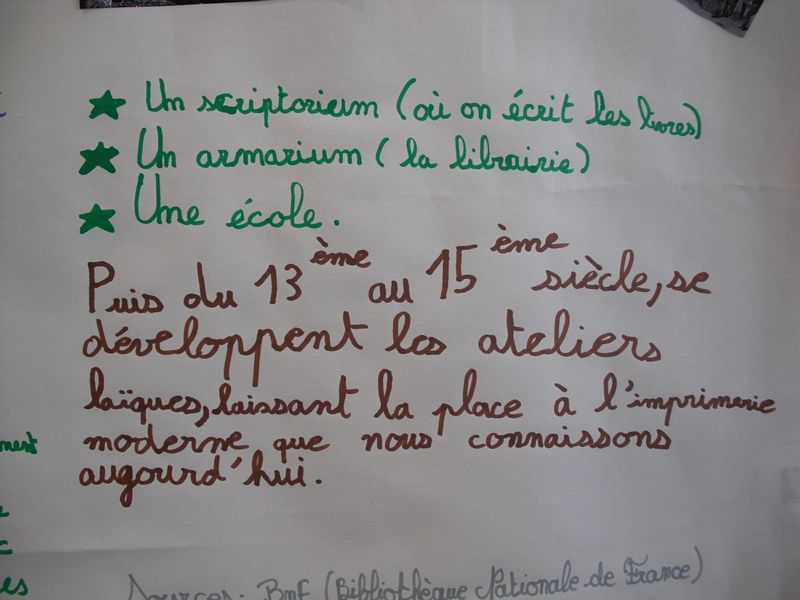 ★ Un scriptorium (où on écrit les livres)
★ Un armarium (la librairie)
★ Une école.
Puis du 13ème au 15ème siècle, se
développent les ateliers
laïques, laissant la place à l'imprimerie
moderne que nous connaissons
augourd'hui.
Sources. BnF (Bibliothèque Nationale de France)